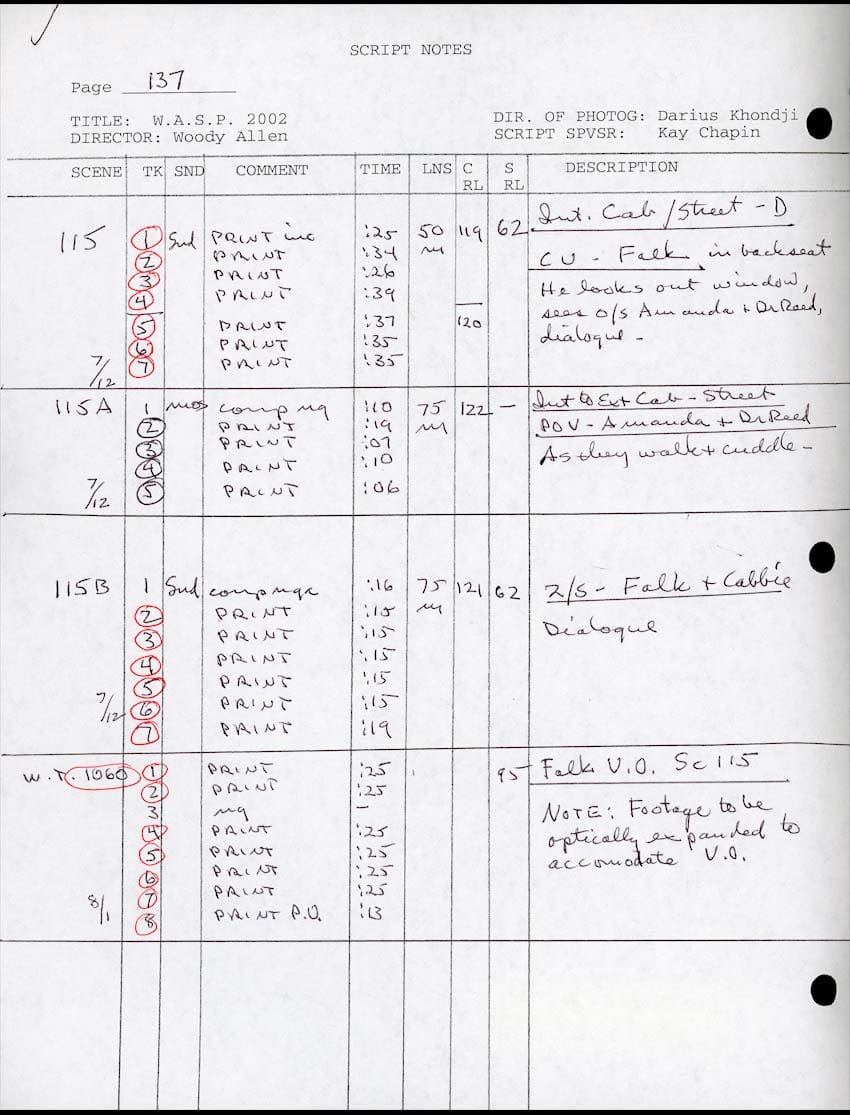 SCRIPT NOTES
Page 137
TITLE: W.A.S.P. 2002 DIR. OF PHOTOG: Darius Khondji
DIRECTOR: Woody Allen SCRIPT SPVSR: Kay Chapin
SCENE TK SND COMMENT TIME LNS C RL S RL DESCRIPTION
Int. Cab/Street - D
115 1 Snd PRINT inc :25 50 119 62
2 PRINT :34 m CU - Falk in backseat
3 PRINT :26
4 PRINT :39 He looks out window,
sees o/s Amanda + Dr Reed,
5 PRINT :37 120
6 PRINT :35 dialogue -
7 PRINT :35
7/12
115A 1 mos comp ng :10 75 122 - Int to Ext Cab - Street
2 PRINT :19 m POV - Amanda + Dr Reed
3 PRINT :07
4 PRINT :10 As they walk + cuddle -
7/12 5 PRINT :06
115B 1 Snd comp nga :16 75 121 62 2/S - Falk + Cabbie
2 PRINT :15 m
3 PRINT :15 Dialogue
4 PRINT :15
5 PRINT :15
7/12 6 PRINT :15
7 PRINT :19
W.T. 1060 1 PRINT :25 95 Falk V.O. Sc 115
2 PRINT :25
3 ng - NOTE: Footage to be
4 PRINT :25 optically expanded to
5 PRINT :25 accomodate V.O.
6 PRINT :25
7 PRINT :25
8/1 8 PRINT P.U. :13